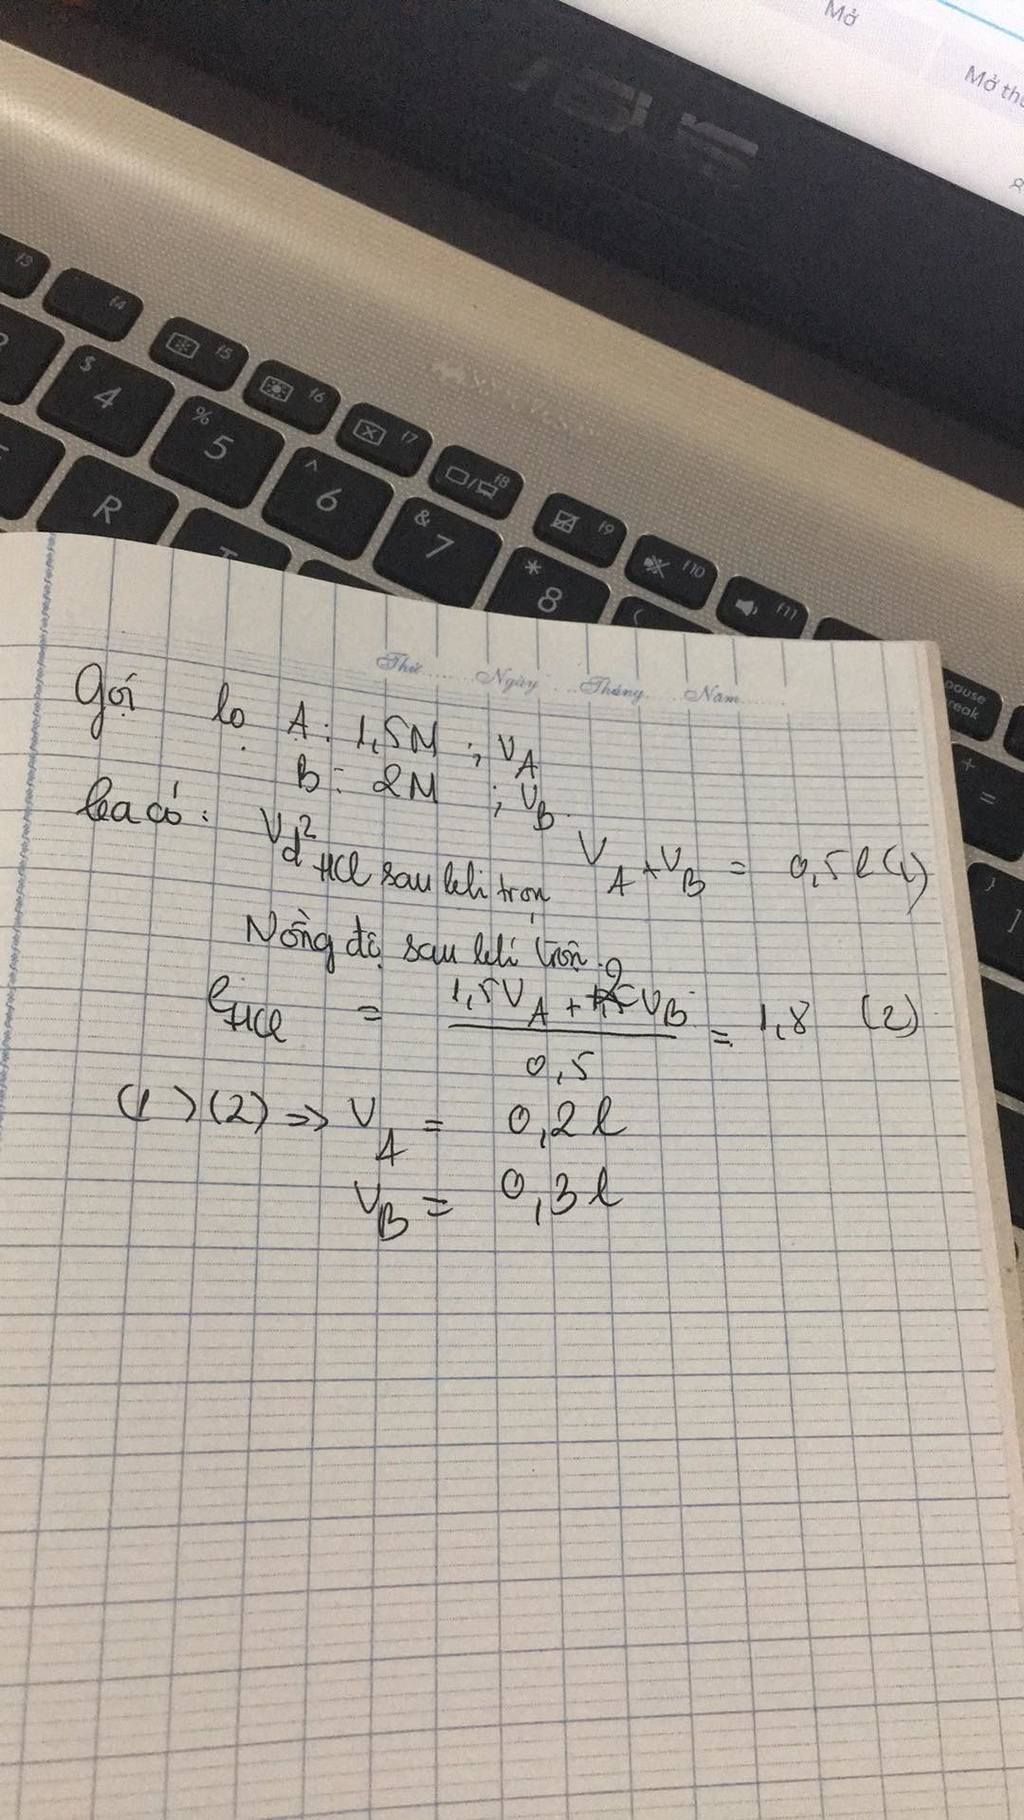 Mở
Mở thư
ASUS
f3
f4
f5
f6
f7
f8
f9
f10
f11
$ 4
% 5
^ 6
& 7
* 8
(
R
T
pause
break
+ =
} ]
Thứ...... Ngày ...Tháng... Năm.......
Gọi lọ A: 1,5M ; VA
B: 2M ; VB.
Ta có: Vd² HCl sau khi trộn VA + VB = 0,5 l (1)
Nồng độ sau khi trộn
CHCl = 1,5VA + 2VB / 0,5 = 1,8 (2)
(1)(2) => VA = 0,2 l
VB = 0,3 l